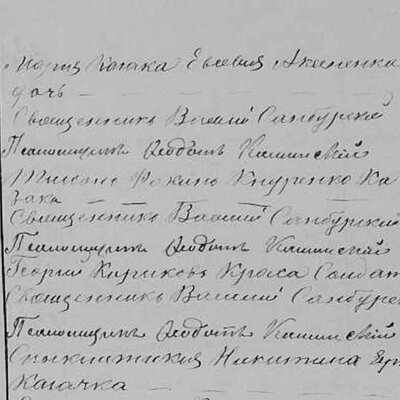 Мария Козака Евсевия Акименка
дочь
Священникъ Василій Санбурскій
Псаломщикъ Ѳеодотъ Кашинскій
Фокино Кудренко Ка
зака
Священникъ Василій Санбурскій
Псаломщикъ Ѳеодотъ Кашинскій
Георгій Кириковъ Краса Солдат
Священникъ Василій Санбурс
Псаломщикъ Ѳеодотъ Кашинскій
Никитина
Козачка